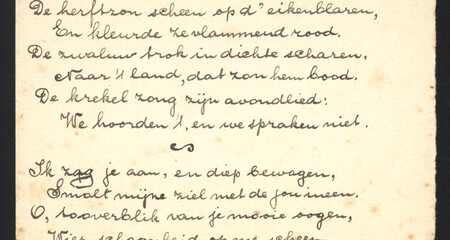 De herfstzon scheen op d'eikenblaren,
En kleurde ze vlammend rood.
De zwaluw trok in dichte scharen,
Naar 't land, dat zon hem bood.
De krekel zong zijn avondlied:
We hoorden 't, en we spraken niet.
Ik zag je aan, en diep bewogen,
Smolt mijne ziel met de jou ineen.
O, tooverblik van je mooie oogen,
Wier schoonheid op me scheen